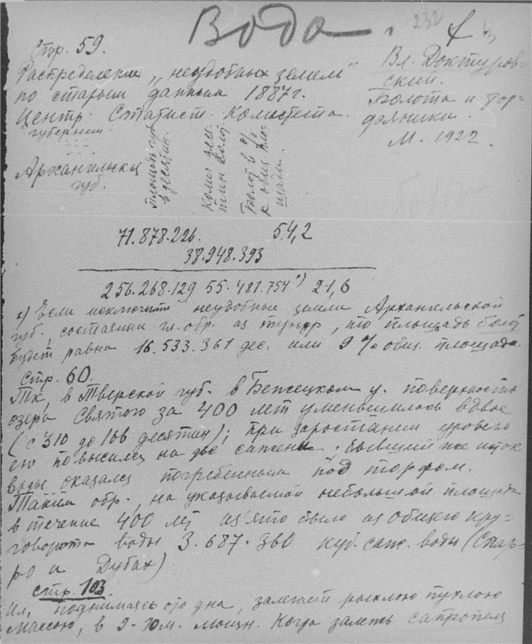 Вода.
232
Стр. 59.
Распределение „неудобных земель"
по старым данным 1887г.
Центр. Статист. Комитета.
Вл. Доктуров-
ский.
Болота и тор-
фяники.
М. 1922.
губернии
Архангельская
губ.
Площ.
в десятин.
Колич. дес-
тин болот
Болот в %
к общ. пло-
щади.
71.878.226. 54,2
38.948.393
256.268.129 55.481.754*) 21,6
*) Если исключить неудобные земли Архангельской
губ. составляющ. гл. обр. из тундр, то площадь болот
будет равна 16.533.361 дес. или 9% общ. площади.
Стр. 60.
Так, в Тверской губ. в Бежецком у. поверхность
озера Святого за 400 лет уменьшилось вдвое
(с 310 до 166 десятин); при зарастании уровень
его повысился на две сажени. Бывший же исток
воды оказался погребенным под торфом.
Таким обр., на указываемой небольшой площади
в течение 400 лет изъято было из общего кру-
говорота воды 3.687.360 куб. саж. воды (Спар-
ро и Дубах)
стр. 103
Ил, поднимаясь со дна, залегает рыхлою пухлою
массою, в 2-10 м. мощн. Когда залежь сапропел